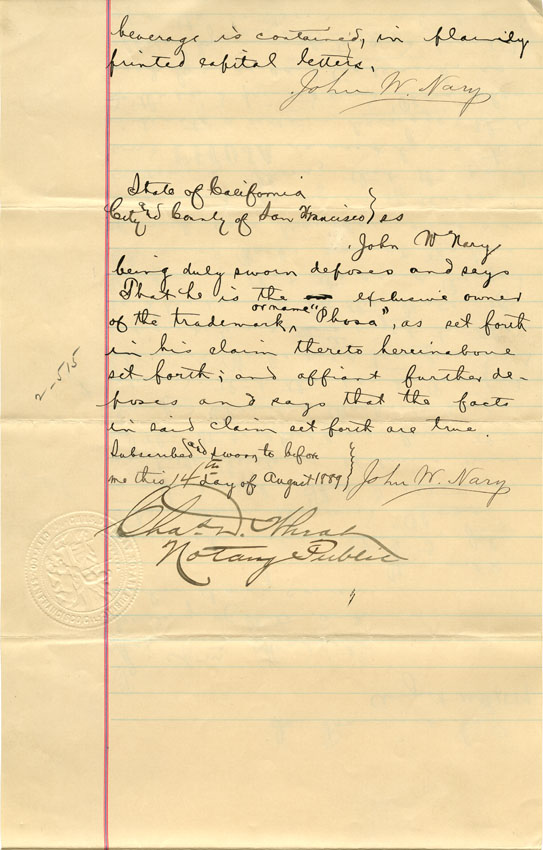 beverage is contained, in plainly
printed capital letters.
John W. Nary
State of California
City & County of San Francisco } ss
John W Nary
being duly sworn deposes and says
That he is the exclusive owner
of the trademark, or name "Phosa", as set forth
in his claim thereto hereinabove
set forth; and affiant further de-
poses and says that the facts
in said claim set forth are true.
Subscribed and sworn to before
me this 14th day of August 1889 } John W. Nary
Chas. D.
Notary Public
2-515